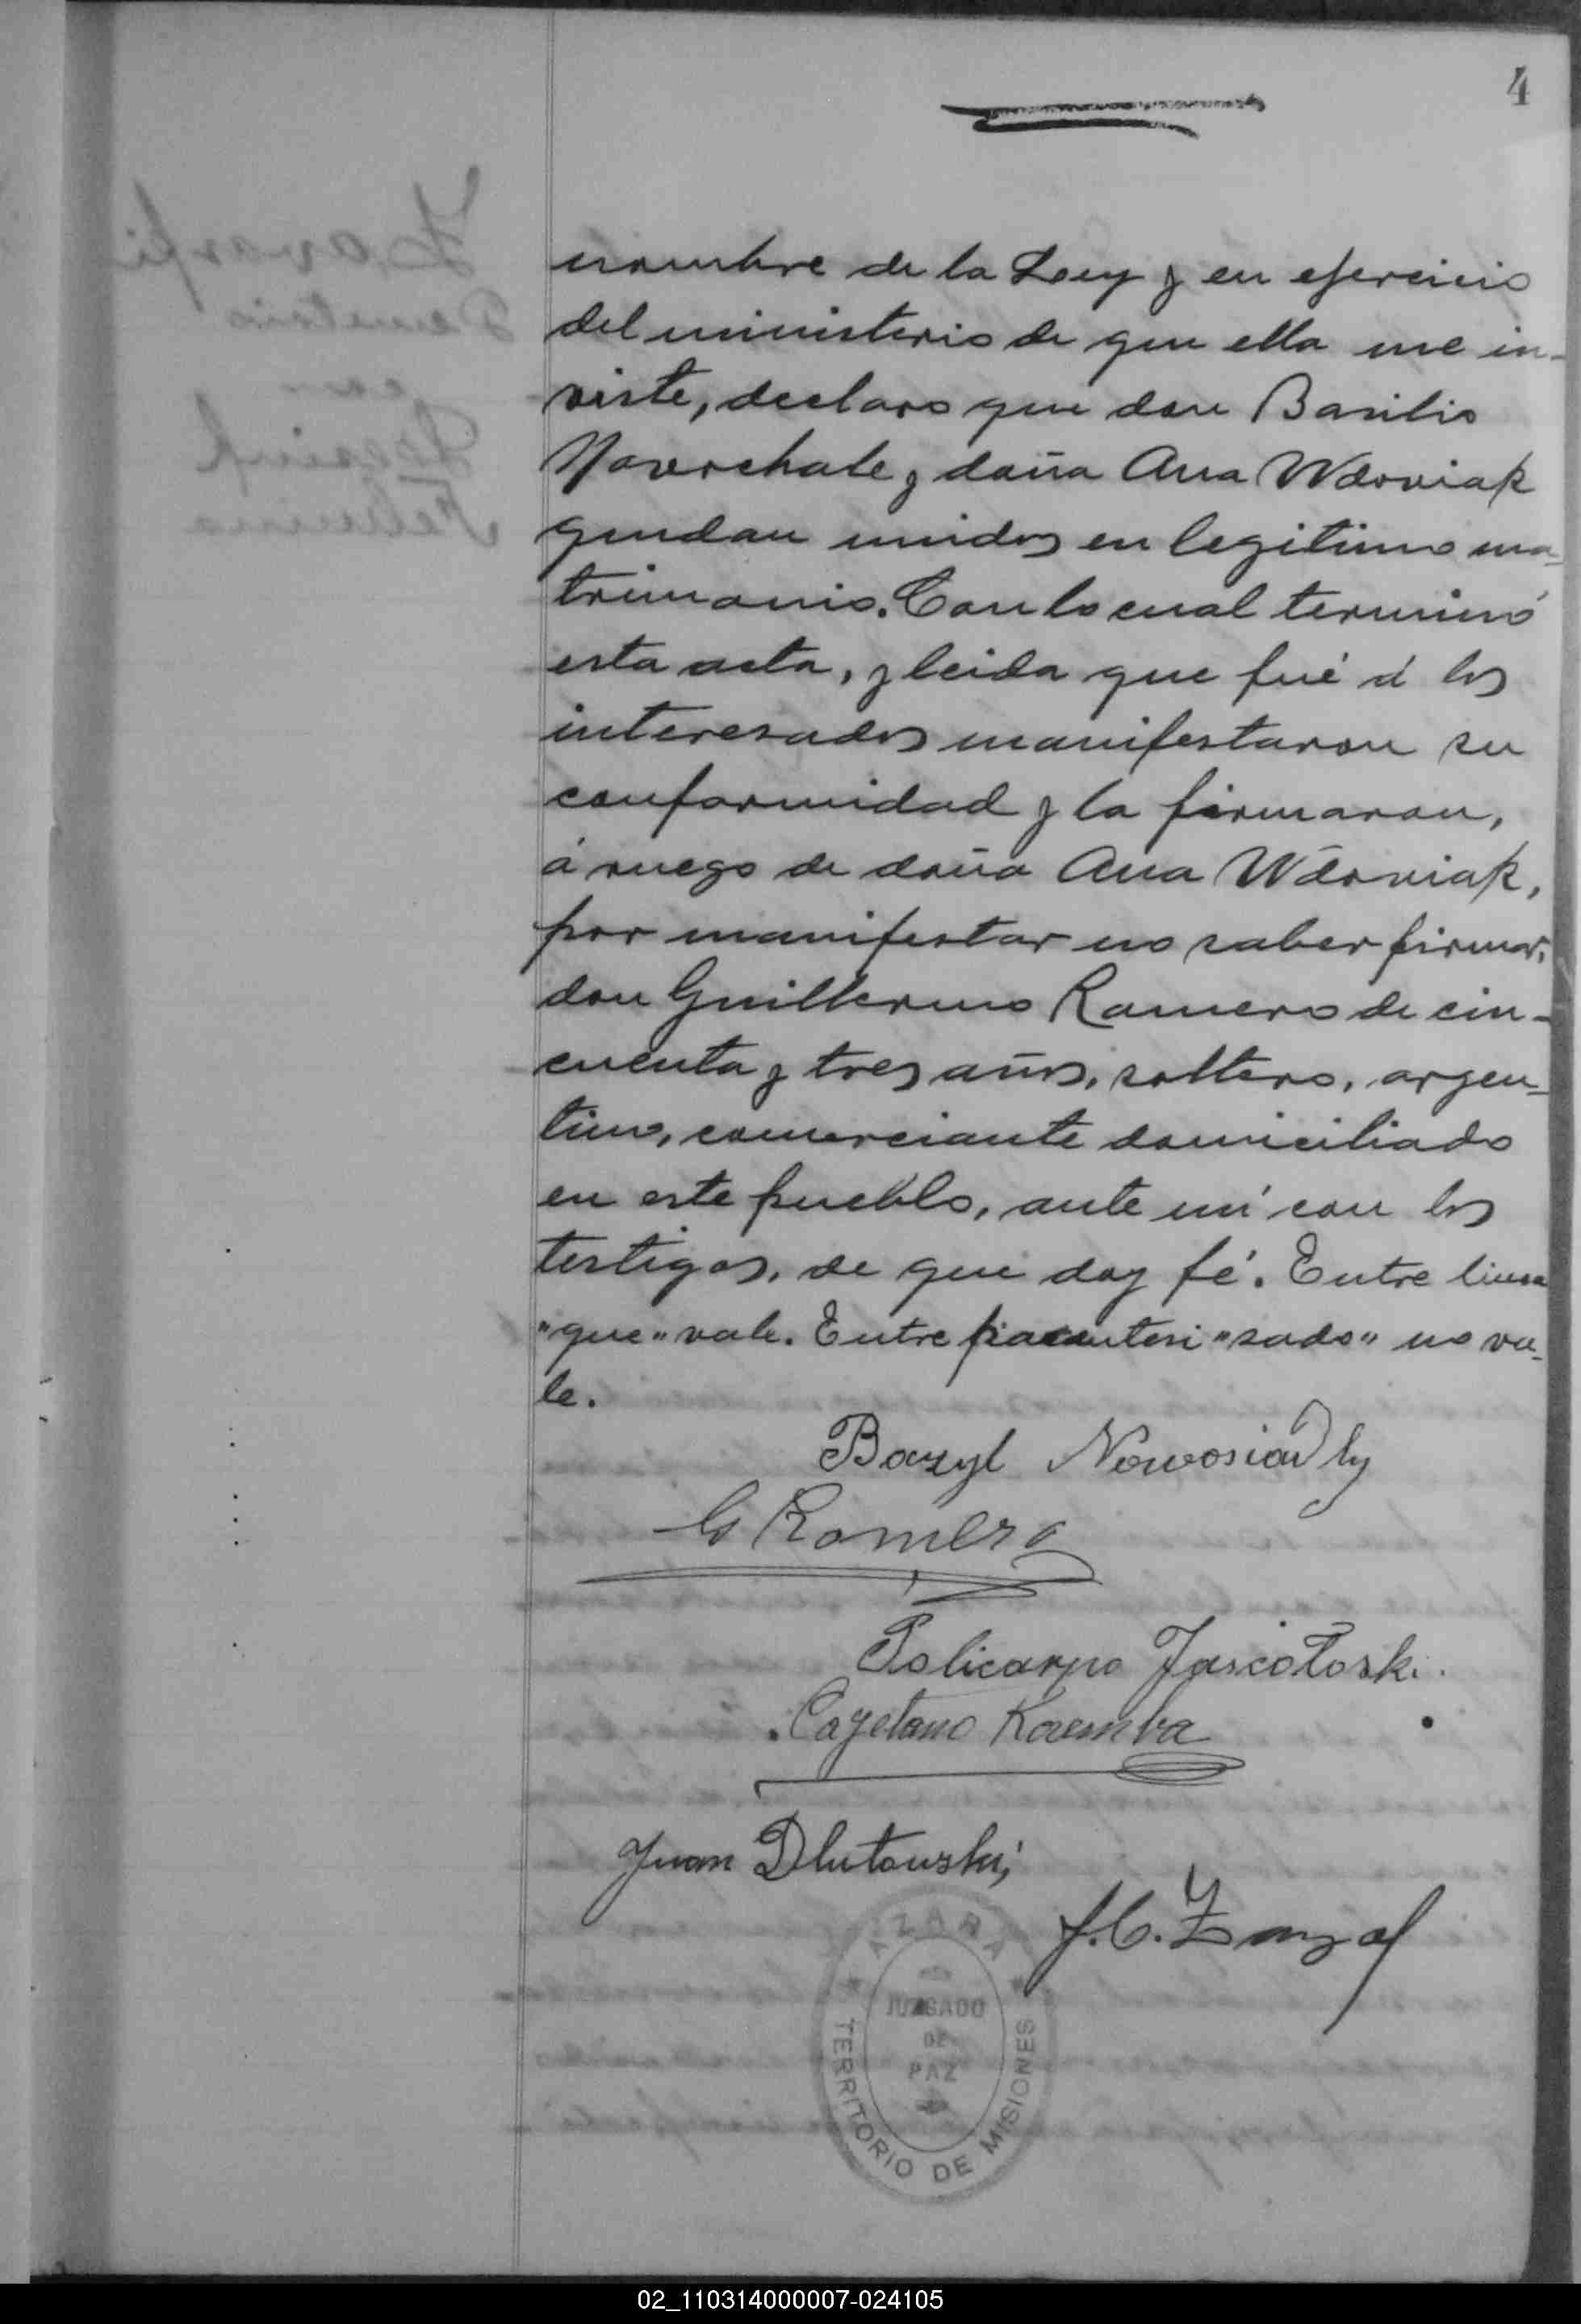 4
nombre de la Ley y en ejercicio
del ministerio de que ella me in-
viste, declaro que don Basilio
y doña Ana Wdoviak
quedan unidos en legitimo ma-
trimonio. Con lo cual terminó
esta acta, y leida que fué á los
interesados manifestaron su
conformidad y la firmaron,
á ruego de doña Ana Wdoviak,
por manifestar no saber firmar,
don Guillermo Romero de cin-
cuenta y tres años, soltero, argen-
tino, comerciante domiciliado
en este pueblo, ante mí con los
testigos, de que doy fé. Entre linea
"que" vale. Entre "sado" no va-
le.
Bazyl Nowosiadly
G Romero
Policarpo Jascotoski
Cayetano Kaemba
Juan Dlutowski
J. C.
AZARA
JUZGADO
DE
PAZ
TERRITORIO DE MISIONES
02_110314000007-024105